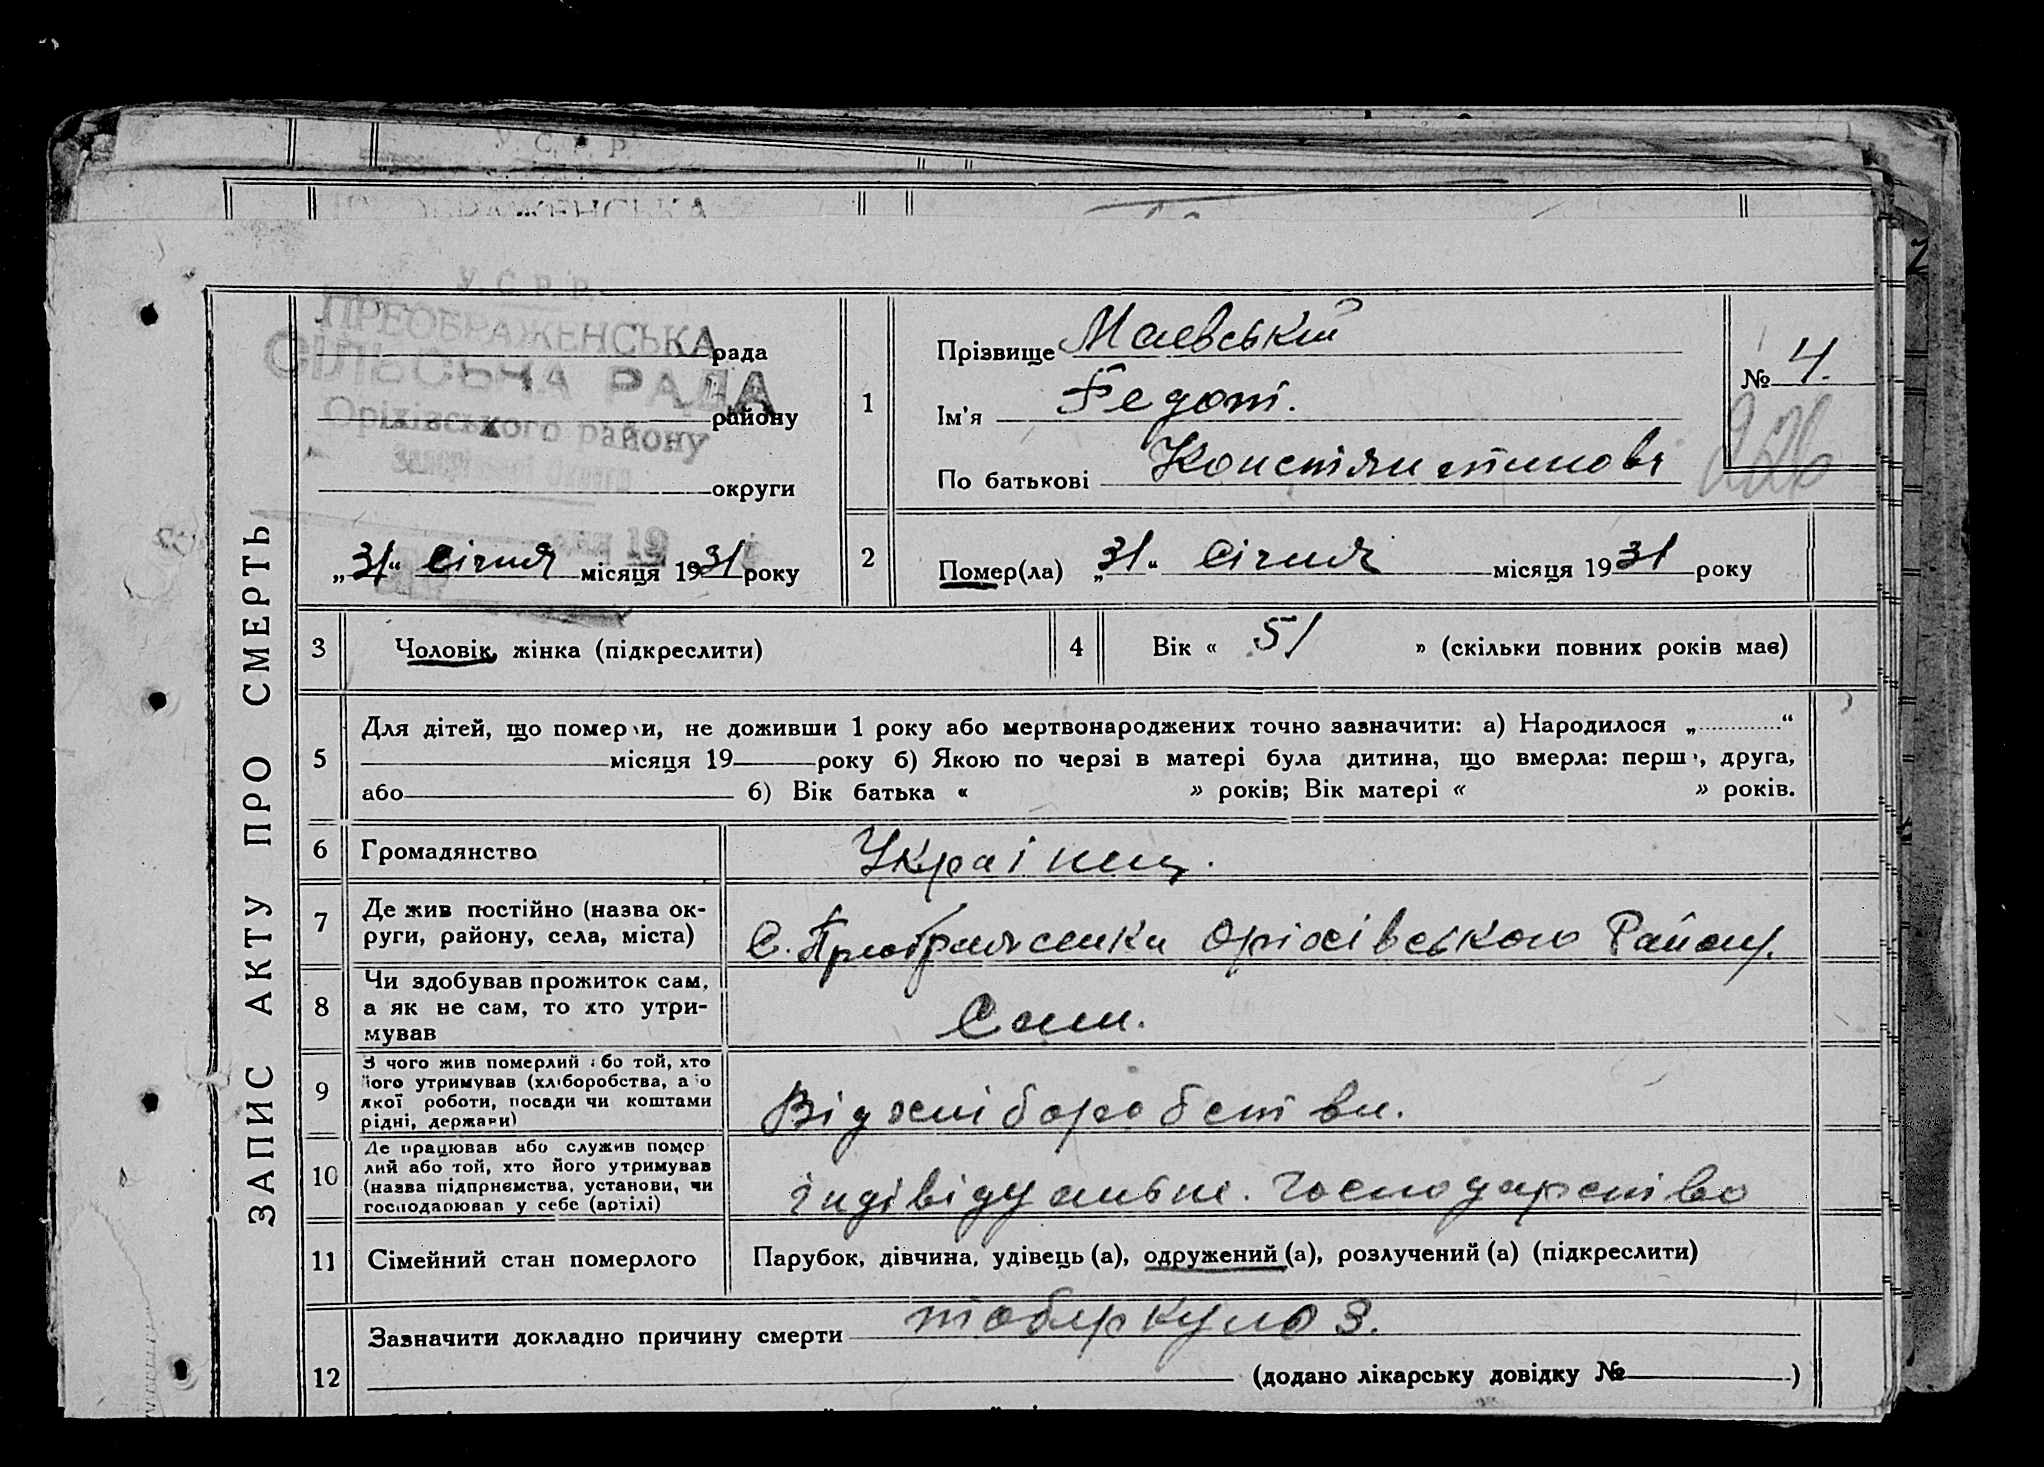 У. С. Р. Р.
У. С. Р. Р.
ПРЕОБРАЖЕНСЬКА рада
СІЛЬСЬКА РАДА
Оріхівського району району
округи
„31“ Січня місяця 1931 року
ЗАПИС АКТУ ПРО СМЕРТЬ
1
Прізвище Маевський
Ім'я Федот.
По батькові Констянтинові
№ 4.
226
2
Помер(ла) „31“ Січня місяця 1931 року
3 Чоловік, жінка (підкреслити)
4 Вік « 51 » (скільки повних років має)
5
Для дітей, що померли, не доживши 1 року або мертвонароджених точно зазначити: а) Народилося „ “
місяця 19 року б) Якою по черзі в матері була дитина, що вмерла: перша, друга,
або 6) Вік батька « » років; Вік матері « » років.
6 Громадянство Украінец.
7 Де жив постійно (назва ок-
руги, району, села, міста) С. Преображенка Оріхівського Району.
8 Чи здобував прожиток сам,
а як не сам, то хто утри-
мував Сам.
9 З чого жив померлий або той, хто
його утримував (хліборобства, або
якої роботи, посади чи коштами
рідні, держави) Від хліборобства.
10 Де працював або служив помер
лий або той, хто його утримував
(назва підприємства, установи, чи
господарював у себе (артілі) індівідуальне. господарство
11 Сімейний стан померлого Парубок, дівчина, удівець (а), одружений (а), розлучений (а) (підкреслити)
12 Зазначити докладно причину смерти тоберкулоз.
(додано лікарську довідку № )